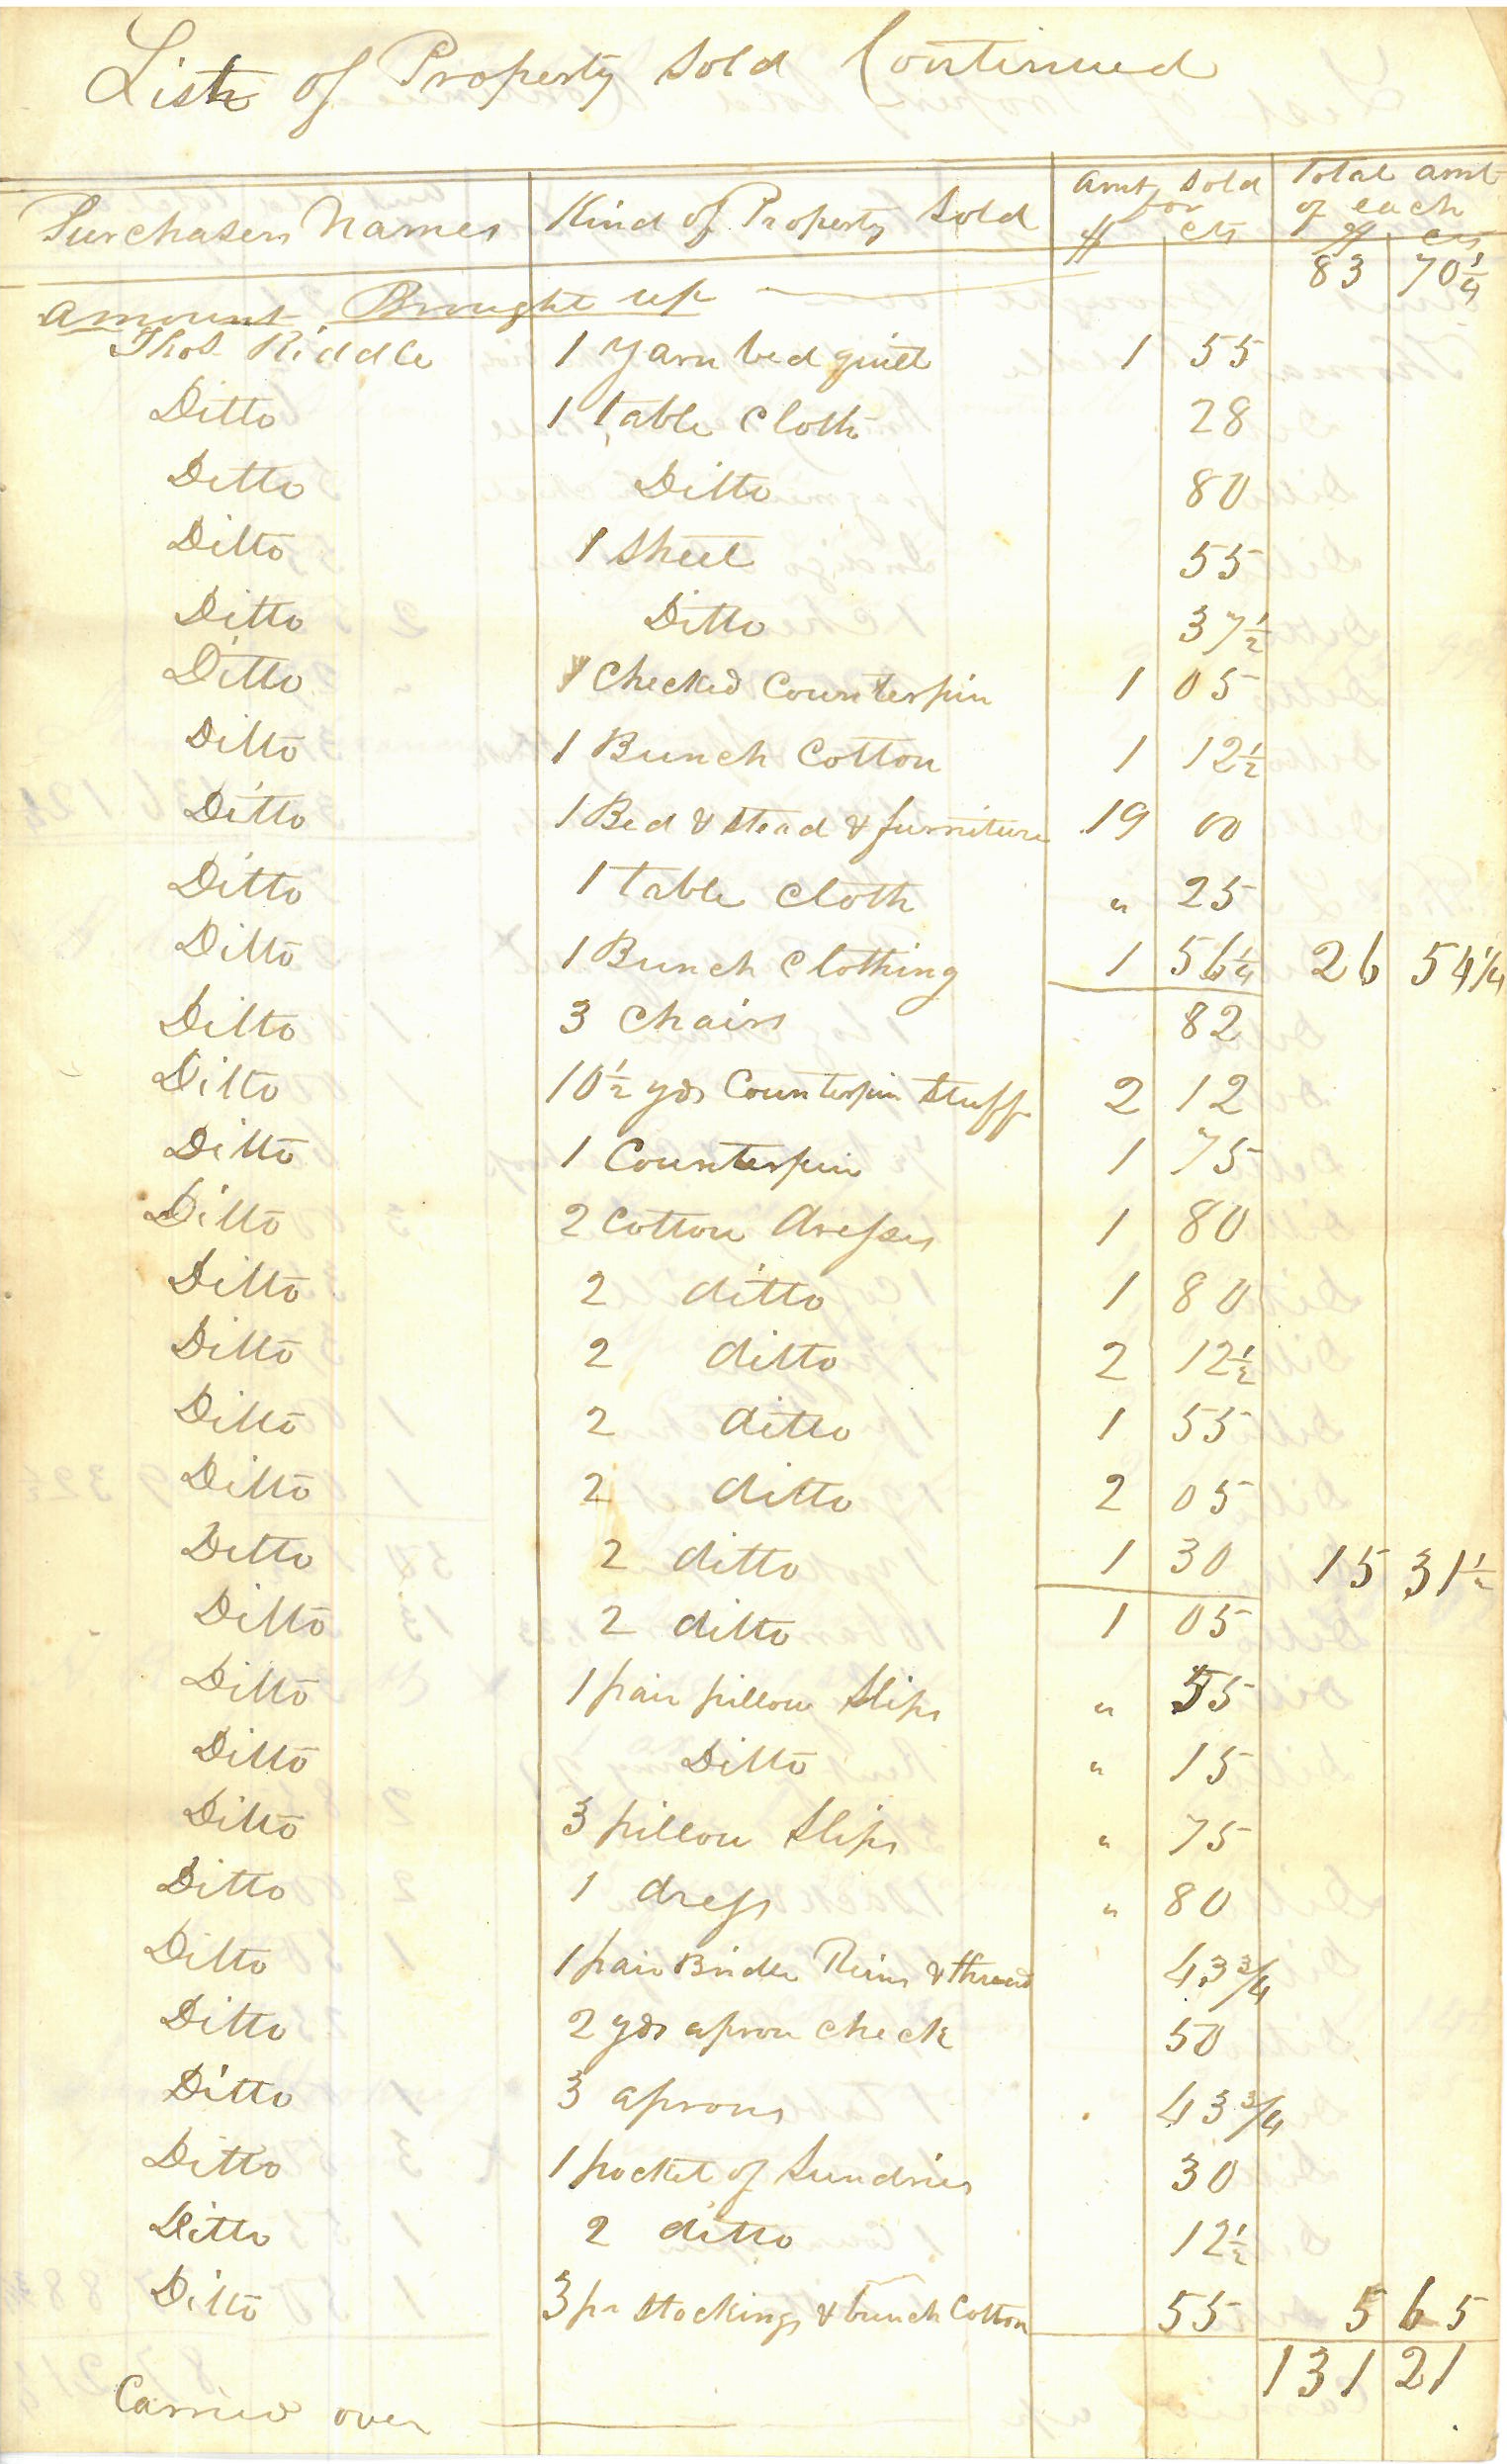 List of Property Sold Continued
Purchasers Names Kind of Property Sold Amt Sold for $ cts Total amt of each $ cts
Amount Brought up 83 70¼
Thos Riddle 1 yarn bed quilt 1 55
Ditto 1 table cloth 28
Ditto Ditto 80
Ditto 1 Sheet 55
Ditto Ditto 37½
Ditto 1 Checked Counterpin 1 05
Ditto 1 Bunch Cotton 1 12½
Ditto 1 Bed & Stead & furniture 19 00
Ditto 1 table cloth " 25
Ditto 1 Bunch Clothing 1 56¼ 26 54¼
Ditto 3 Chairs 82
Ditto 10½ yds Counterpin Stuff 2 12
Ditto 1 Counterpin 1 75
Ditto 2 Cotton dresses 1 80
Ditto 2 ditto 1 80
Ditto 2 ditto 2 12½
Ditto 2 ditto 1 55
Ditto 2 ditto 2 05
Ditto 2 ditto 1 30 15 31½
Ditto 2 ditto 1 05
Ditto 1 pair pillow Slips " 55
Ditto Ditto " 15
Ditto 3 pillow Slips " 75
Ditto 1 dress " 80
Ditto 1 pair Bridle Reins & thread 43¾
Ditto 2 yds apron check 50
Ditto 3 aprons 43¾
Ditto 1 pocket of Sundries 30
Ditto 2 ditto 12½
Ditto 3 pr Stockings & bunch Cotton 55 5 65
131 21
Carried over